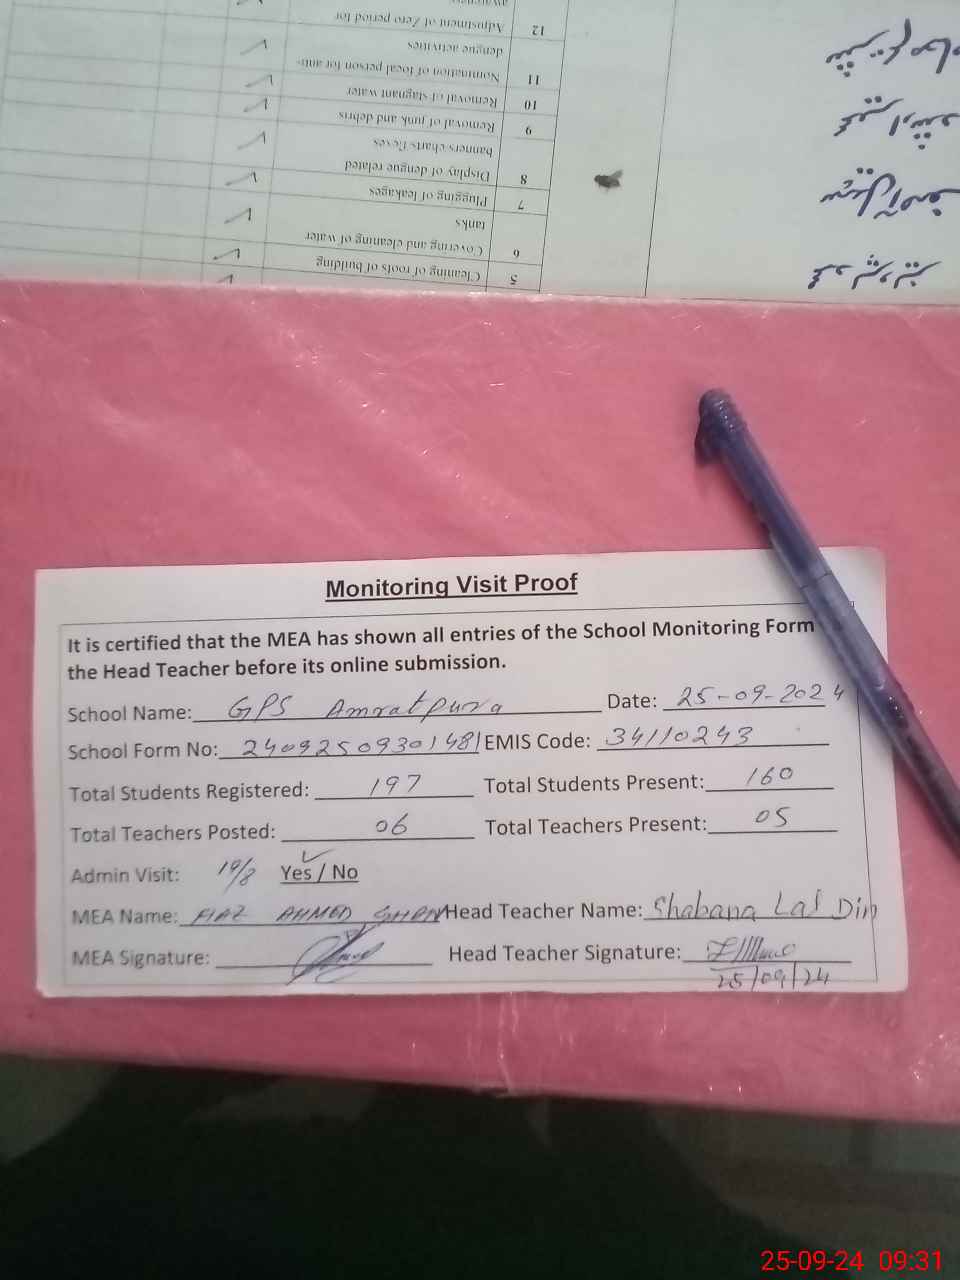 awareness
12 Adjustment of Zero period for
dengue activities
11 Nomination of focal person for anti-
10 Removal of stagnant water
9 Removal of junk and debris
banners charts flexes
8 Display of dengue related
7 Plugging of leakages
tanks
6 Covering and cleaning of water
5 Cleaning of roofs of building
Monitoring Visit Proof
It is certified that the MEA has shown all entries of the School Monitoring Form
the Head Teacher before its online submission.
School Name: GPS Amratpura Date: 25-09-2024
School Form No: 24092509301481 EMIS Code: 34110243
Total Students Registered: 197 Total Students Present: 160
Total Teachers Posted: 06 Total Teachers Present: 05
Admin Visit: 19/8 Yes / No
MEA Name: FIAZ AHMED Head Teacher Name: Shabana Lal Din
MEA Signature: Head Teacher Signature:
25/09/24
25-09-24 09:31